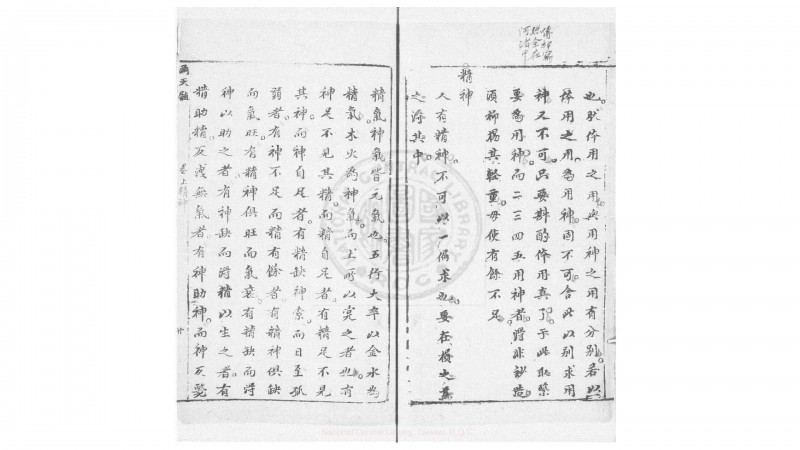 也。然体用之用與用神之用有分別。若以
体用之用。為用神。固不可舍此以別求用
神又不可。只要斟酌体用真了。于此取緊
要為用神。而二三四五用神者。的非妙造。
須抑揚其輕重。毋使有餘不足。
精神
人有精神。不可以一偏求也。要在損之益
之得其中。
精氣神氣皆元氣也。五行大率以金水為
精氣。木火為神氣。而土所以實之者也。有
神足不見其精。而精自足者。有精足不見
其神。而神自足者。有精缺神索。而日主孤
弱者。有神不足而精有餘者。有精神俱缺
而氣旺。有精神俱旺而氣衰。有精缺而得
神以助之者。有神缺而得精以生之者。有
精助精反洩無氣者。有神助神。而神反斃
滴天髓
卷上
NATIONAL CENTRAL LIBRARY